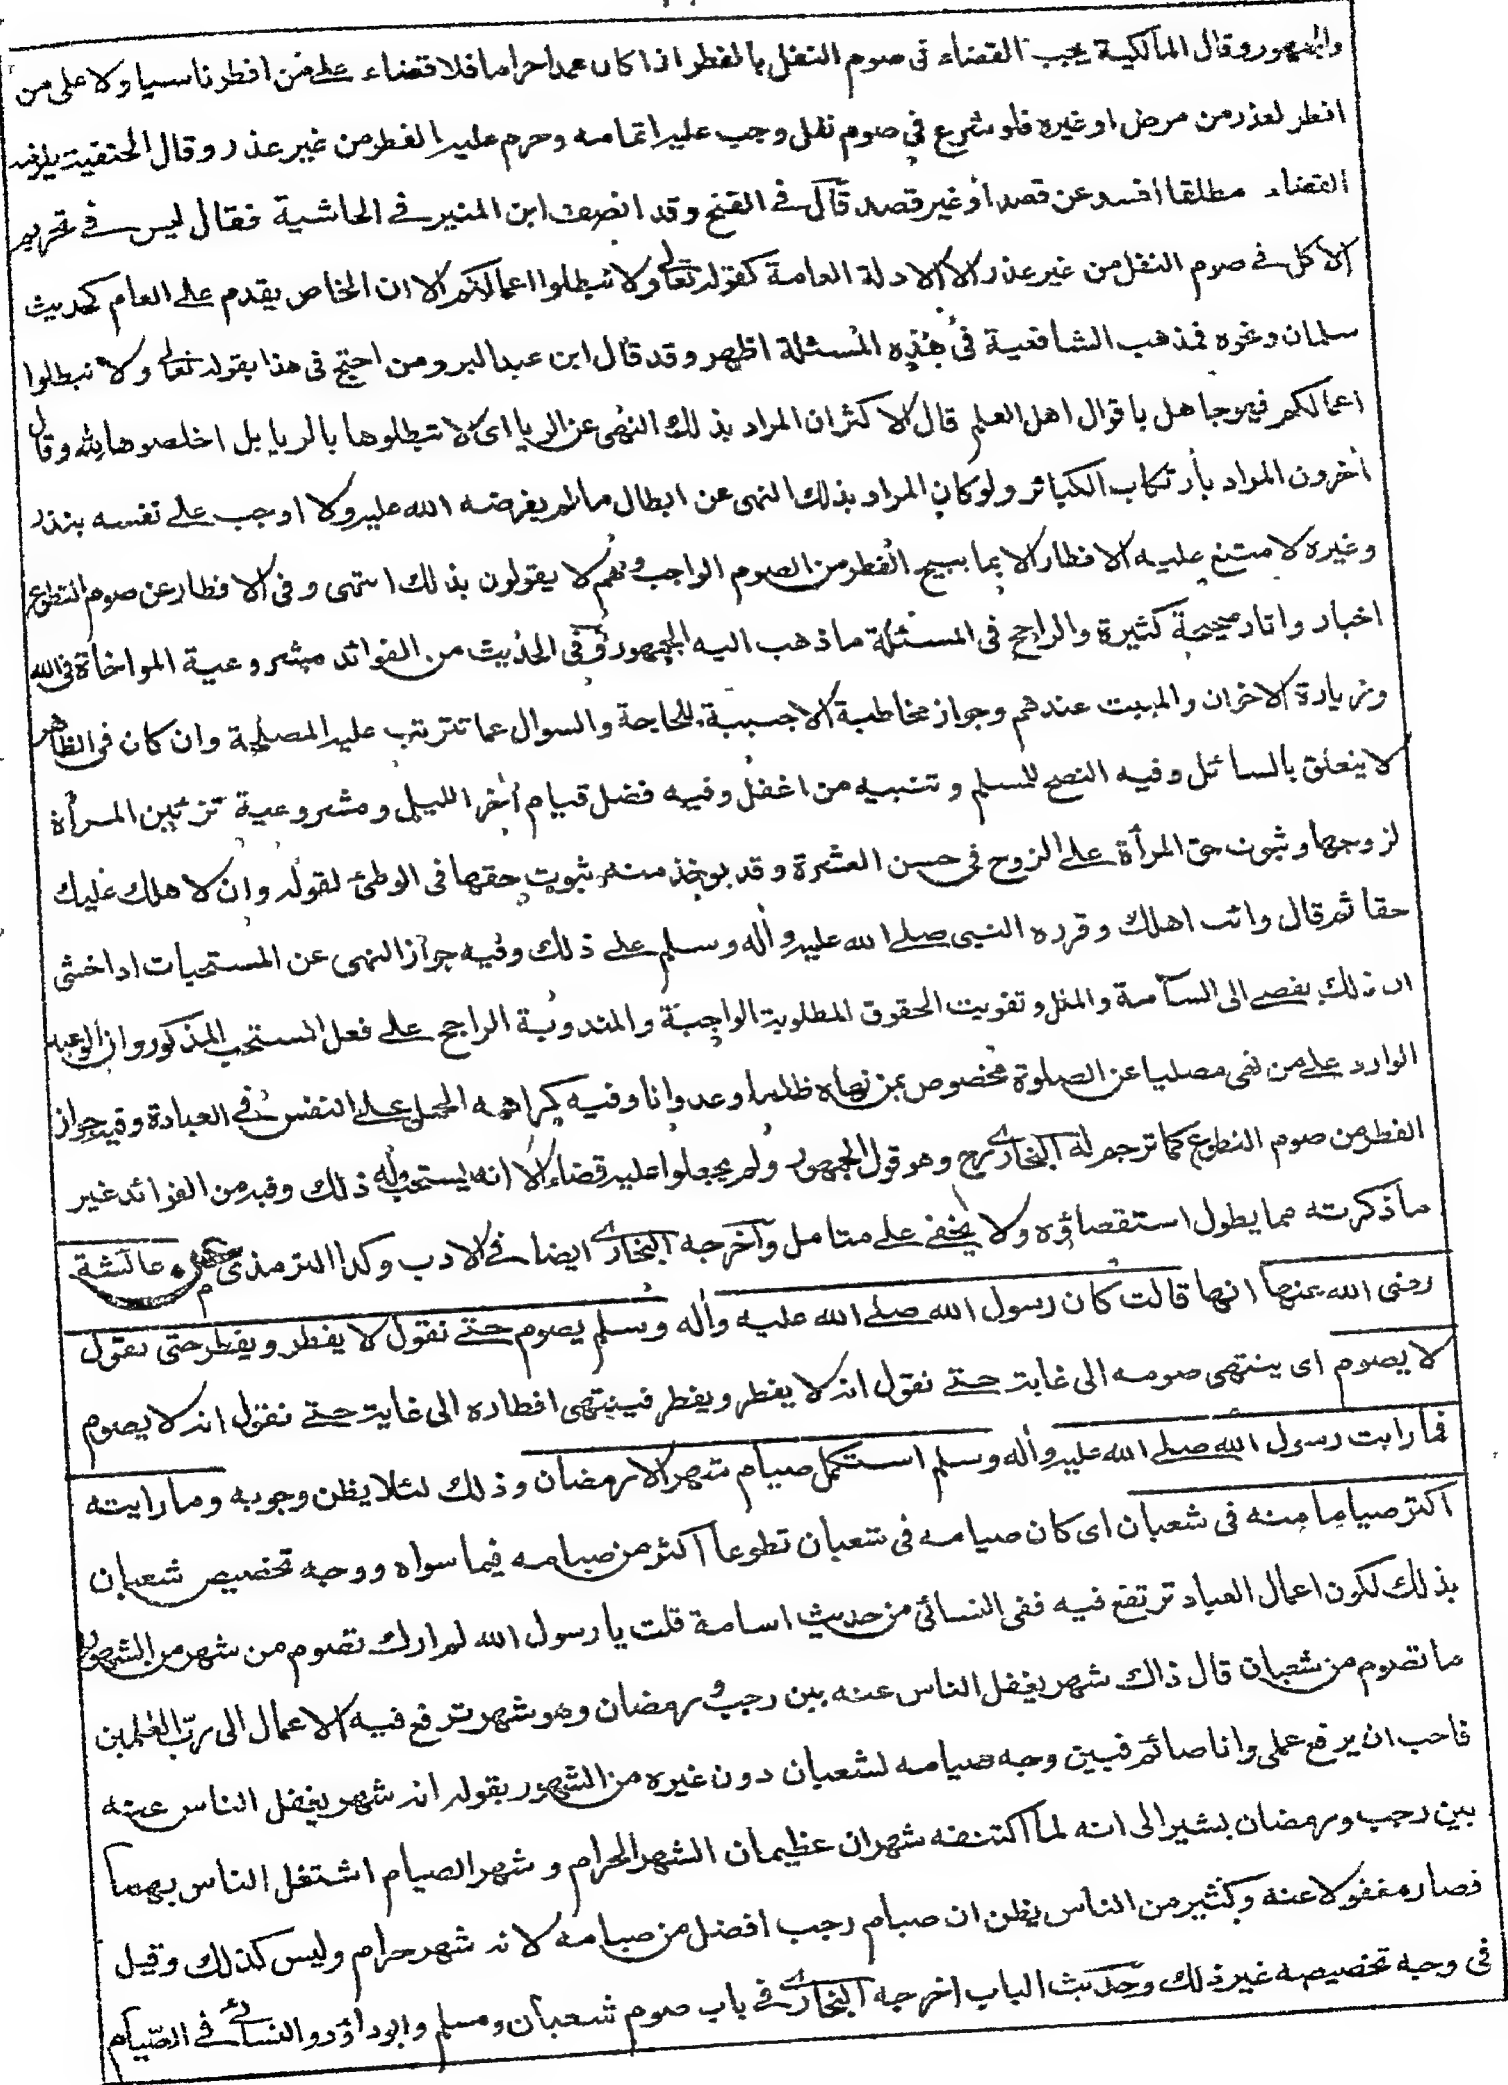 والجمهور وقال المالكية يجب القضاء في صوم النفل بالفطر اذا كان عمدا حراما فلا قضاء على من افطر ناسيا ولا على من
افطر لعذر من مرض او غيره فلو شرع في صوم نفل وجب عليه اتمامه وحرم عليه الفطر من غير عذر وقال الحنفية يلزمه
القضاء مطلقا افسد عن قصد او غير قصد قال في الفتح وقد انصف ابن المنير في الحاشية فقال ليس في تحريم
الاكل في صوم النفل من غير عذر الا الادلة العامة كقوله تعالى ولا تبطلوا اعمالكم الا ان الخاص يقدم على العام كحديث
سلمان ونحوه فمذهب الشافعية في هذه المسئلة اظهر وقد قال ابن عبد البر ومن احتج في هذا بقوله تعالى ولا تبطلوا
اعمالكم فهو جاهل باقوال اهل العلم قال الاكثر ان المراد بذلك النهى عن الريا اى لا تبطلوها بالريا بل اخلصوها لله وقال
أخرون المراد بأرتكاب الكبائر ولو كان المراد بذلك النهى عن ابطال ما لم يفرضه الله عليه ولا اوجب على نفسه بنذر
وغيره لامتنع عليه الافطار الا بما يبيح الفطر من الصوم الواجب وهم لا يقولون بذلك انتهى وفى الافطار عن صوم التطوع
اخبار واثار صحيحة كثيرة والراجح فى المسئلة ما ذهب اليه الجمهور وفى الحديث من الفوائد مشروعية المواخأة فى الله
وزيارة الاخوان والمبيت عندهم وجواز مخاطبة الاجنبية للحاجة والسوال عما تترتب عليه المصلحة وان كان فى الظاهر
لا يتعلق بالسائل وفيه النصح للمسلم وتنبيه من اغفل وفيه فضل قيام أخر الليل ومشروعية تزئين المرأة
لزوجها وثبوت حق المرأة على الزوج فى حسن العشرة وقد يوخذ منه ثبوت حقها فى الوطئ لقوله وان لاهلك عليك
حقا ثم قال وائت اهلك وقرره النبى صلى الله عليه وأله وسلم على ذلك وفيه جواز النهى عن المستحبات اذا خشى
ان ذلك يفضى الى السآمة والملل وتفويت الحقوق المطلوبة الواجبة والمندوبة الراجح على فعل المستحب المذكور وان الوعيد
الوارد على من نهى مصليا عن الصلوة مخصوص بمن نهاه ظلما وعدوانا وفيه كراهة الحمل على النفس فى العبادة وفيه جواز
الفطر من صوم التطوع كما ترجم له البخارى رح وهو قول الجمهور ولم يجعلوا عليه قضاء الا انه يستحب له ذلك وفيه من الفوائد غير
ما ذكرته مما يطول استقصاؤه ولا يخفى على متامل وآخرجه البخارى ايضا فى الادب وكذا الترمذى عن عائشة
رضى الله عنها انها قالت كان رسول الله صلى الله عليه وأله وسلم يصوم حتى نقول لا يفطر ويفطر حتى نقول
لا يصوم اى ينتهى صومه الى غاية حتى نقول انه لا يفطر ويفطر فينتهى افطاره الى غاية حتى نقول انه لا يصوم
فما رايت رسول الله صلى الله عليه وأله وسلم استكمل صيام شهر الا رمضان وذلك لئلا يظن وجوبه وما رايته
اكثر صياما منه فى شعبان اى كان صيامه فى شعبان تطوعا اكثر من صيامه فيما سواه ووجه تخصيص شعبان
بذلك لكون اعمال العباد ترتفع فيه ففى النسائى من حديث اسامة قلت يا رسول الله لم ارك تصوم من شهر من الشهور
ما تصوم من شعبان قال ذاك شهر يغفل الناس عنه بين رجب ورمضان وهو شهر ترفع فيه الاعمال الى رب العلمين
فاحب ان يرفع عملى وانا صائم فبين وجه صيامه لشعبان دون غيره من الشهور بقوله انه شهر يغفل الناس عنه
بين رجب ورمضان يشير الى انه لما اكتنفه شهران عظيمان الشهر الحرام وشهر الصيام اشتغل الناس بهما
فصار مغفولا عنه وكثير من الناس يظن ان صيام رجب افضل من صيامه لانه شهر حرام وليس كذلك وقيل
فى وجه تخصيصه غير ذلك وحديث الباب اخرجه البخارى فى باب صوم شعبان ومسلم وابو داؤد والنسائى فى الصيام